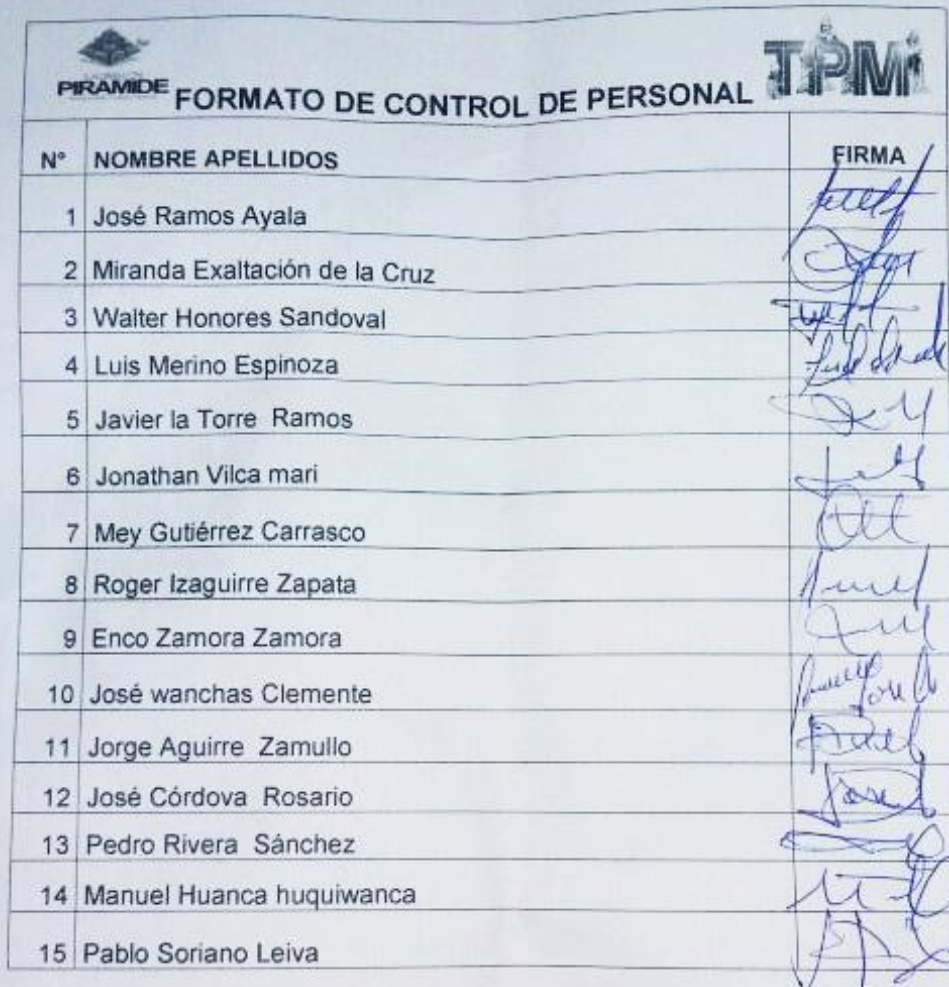 PIRAMIDE
FORMATO DE CONTROL DE PERSONAL
TPM
N° NOMBRE APELLIDOS FIRMA
1 José Ramos Ayala
2 Miranda Exaltación de la Cruz
3 Walter Honores Sandoval
4 Luis Merino Espinoza
5 Javier la Torre Ramos
6 Jonathan Vilca mari
7 Mey Gutiérrez Carrasco
8 Roger Izaguirre Zapata
9 Enco Zamora Zamora
10 José wanchas Clemente
11 Jorge Aguirre Zamullo
12 José Córdova Rosario
13 Pedro Rivera Sánchez
14 Manuel Huanca huquiwanca
15 Pablo Soriano Leiva